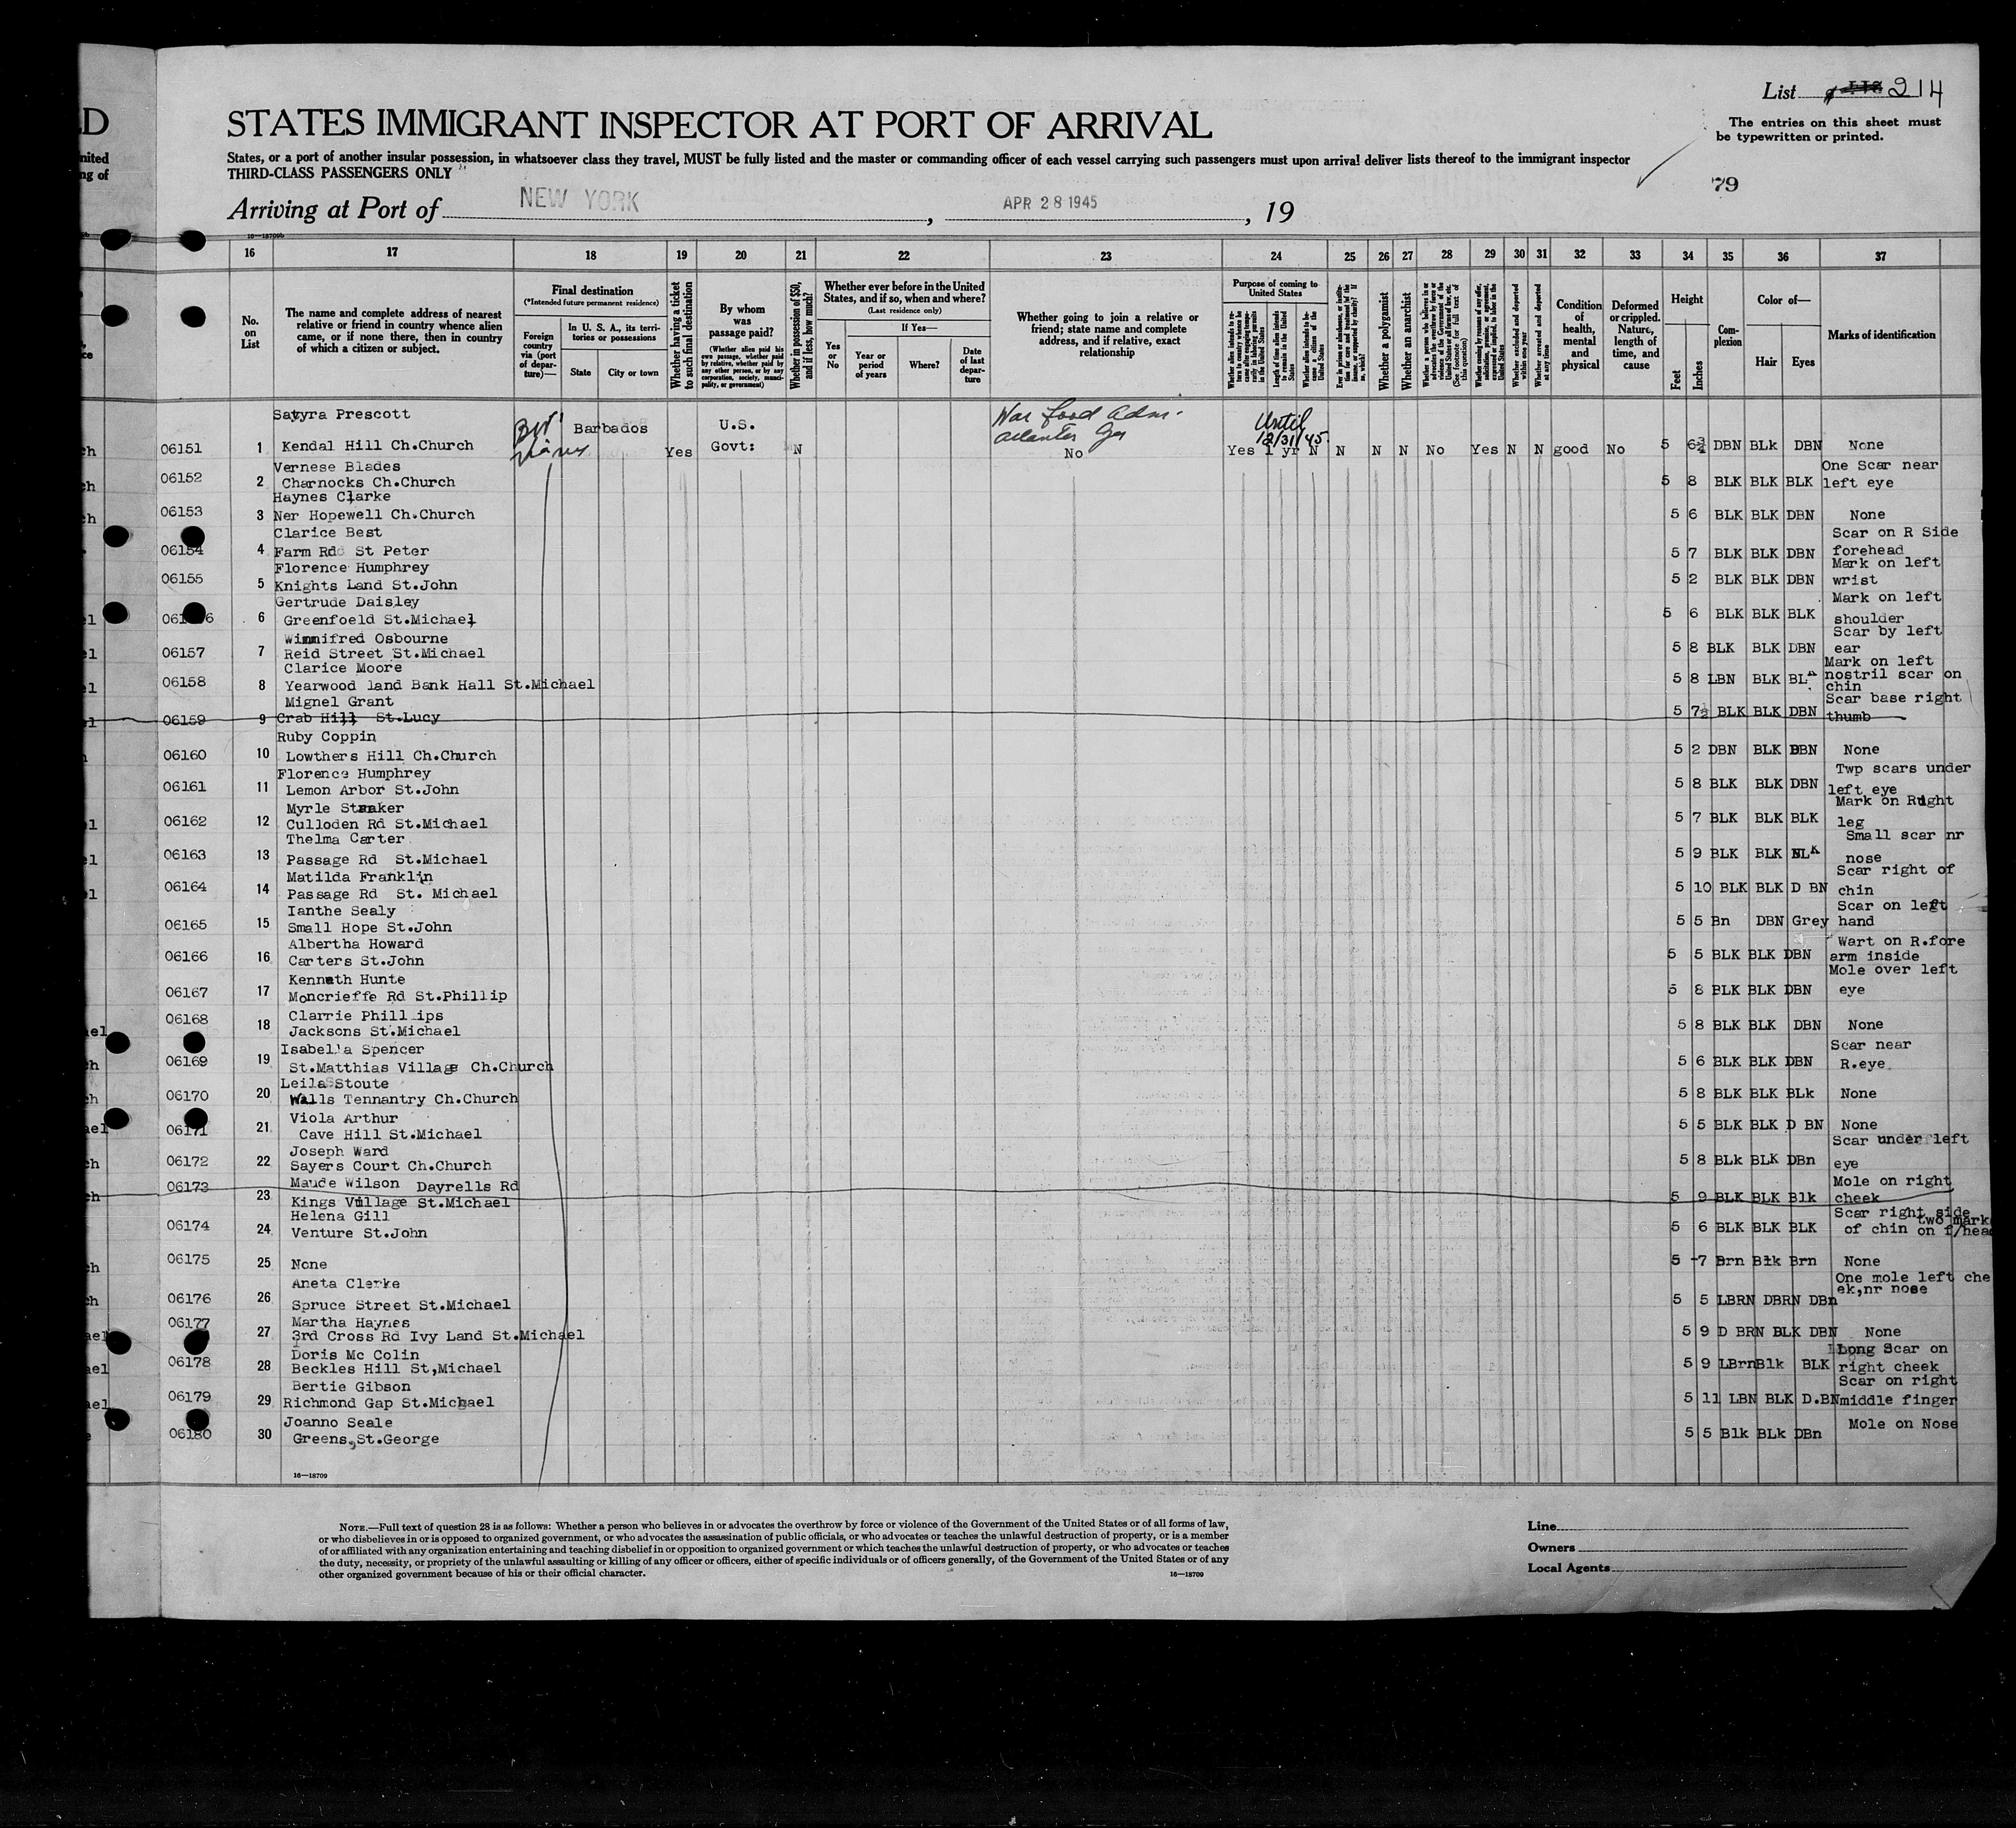 List 214
The entries on this sheet must
be typewritten or printed.
STATES IMMIGRANT INSPECTOR AT PORT OF ARRIVAL
States, or a port of another insular possession, in whatsoever class they travel, MUST be fully listed and the master or commanding officer of each vessel carrying such passengers must upon arrival deliver lists thereof to the immigrant inspector
THIRD-CLASS PASSENGERS ONLY
79
Arriving at Port of NEW YORK , APR 28 1945 , 19
16—18709b
16 17 18 19 20 21 22 23 24 25 26 27 28 29 30 31 32 33 34 35 36 37
No. on List
The name and complete address of nearest relative or friend in country whence alien came, or if none there, then in country of which a citizen or subject.
Final destination
(*Intended future permanent residence)
Foreign country via (port of departure)—
In U. S. A., its territories or possessions
State City or town
Whether having a ticket to such final destination
By whom was passage paid?
(Whether alien paid his own passage, whether paid by relative, whether paid by any other person, or by any corporation, society, municipality, or government)
Whether in possession of $50, and if less, how much?
Whether ever before in the United States, and if so, when and where?
(Last residence only)
Yes or No
If Yes—
Year or period of years Where? Date of last departure
Whether going to join a relative or friend; state name and complete address, and if relative, exact relationship
Purpose of coming to United States
Whether a polygamist
Whether an anarchist
Condition of health, mental and physical
Deformed or crippled. Nature, length of time, and cause
Height
Feet Inches
Complexion
Color of—
Hair Eyes
Marks of identification
Satyra Prescott War food Adm. Until
06151 1 Kendal Hill Ch.Church Barbados Yes U.S. Govt: N No 12/31/45 Yes 1 yr N N N N No Yes N N good No 5 6¾ DBN BLk DBN None
Vernese Blades One Scar near
06152 2 Charnocks Ch.Church 5 8 BLK BLK BLK left eye
Haynes Clarke
06153 3 Ner Hopewell Ch.Church 5 6 BLK BLK DBN None
Clarice Best Scar on R Side
06154 4 Farm Rd St Peter 5 7 BLK BLK DBN forehead
Florence Humphrey Mark on left
06155 5 Knights Land St.John 5 2 BLK BLK DBN wrist
Gertrude Daisley Mark on left
6 Greenfoeld St.Michael 5 6 BLK BLK BLK shoulder
Winnifred Osbourne Scar by left
06157 7 Reid Street St.Michael 5 8 BLK BLK DBN ear
Clarice Moore Mark on left
06158 8 Yearwood land Bank Hall St.Michael 5 8 LBN BLK BLK nostril scar on
chin
Mignel Grant Scar base right
06159 9 Crab Hill St.Lucy 5 7½ BLK BLK DBN thumb
Ruby Coppin
06160 10 Lowthers Hill Ch.Church 5 2 DBN BLK DBN None
Florence Humphrey Twp scars under
06161 11 Lemon Arbor St.John 5 8 BLK BLK DBN left eye
Myrle Straker Mark on Right
06162 12 Culloden Rd St.Michael 5 7 BLK BLK BLK leg
Thelma Carter Small scar nr
06163 13 Passage Rd St.Michael 5 9 BLK BLK BLK nose
Matilda Franklin Scar right of
06164 14 Passage Rd St. Michael 5 10 BLK BLK D BN chin
Ianthe Sealy Scar on left
06165 15 Small Hope St.John 5 5 Bn DBN Grey hand
Albertha Howard Wart on R.fore
06166 16 Carters St.John 5 5 BLK BLK DBN arm inside
Kennath Hunte Mole over left
06167 17 Moncrieffe Rd St.Phillip 5 8 BLK BLK DBN eye
Clarrie Phillips
06168 18 Jacksons St.Michael 5 8 BLK BLK DBN None
Isabella Spencer Scar near
06169 19 St.Matthias Village Ch.Church 5 6 BLK BLK DBN R.eye
Leila Stoute
06170 20 Walls Tennantry Ch.Church 5 8 BLK BLK BLk None
Viola Arthur
06171 21 Cave Hill St.Michael 5 5 BLK BLK D BN None
Joseph Ward Scar under left
06172 22 Sayers Court Ch.Church 5 8 BLk BLK DBn eye
Maude Wilson Dayrells Rd Mole on right
06173 23 Kings Village St.Michael 5 9 BLK BLK Blk cheek
Helena Gill Scar right side two mark
06174 24 Venture St.John 5 6 BLK BLK BLK of chin on f/hea
06175 25 None 5 7 Brn Blk Brn None
Aneta Clerke One mole left che
06176 26 Spruce Street St.Michael 5 5 LBRN DBRN DBn ek,nr nose
Martha Haynes
06177 27 3rd Cross Rd Ivy Land St.Michael 5 9 D BRN BLK DBN None
Doris Mc Colin Long Scar on
06178 28 Beckles Hill St,Michael 5 9 LBrn Blk BLK right cheek
Bertie Gibson Scar on right
06179 29 Richmond Gap St.Michael 5 11 LBN BLK D.BN middle finger
Joanno Seale Mole on Nose
06180 30 Greens,St.George 5 5 Blk BLk DBn
16—18709
NOTE.—Full text of question 28 is as follows: Whether a person who believes in or advocates the overthrow by force or violence of the Government of the United States or of all forms of law,
or who disbelieves in or is opposed to organized government, or who advocates the assassination of public officials, or who advocates or teaches the unlawful destruction of property, or is a member
of or affiliated with any organization entertaining and teaching disbelief in or opposition to organized government or which teaches the unlawful destruction of property, or who advocates or teaches
the duty, necessity, or propriety of the unlawful assaulting or killing of any officer or officers, either of specific individuals or of officers generally, of the Government of the United States or of any
other organized government because of his or their official character.
16—18709
Line
Owners
Local Agents